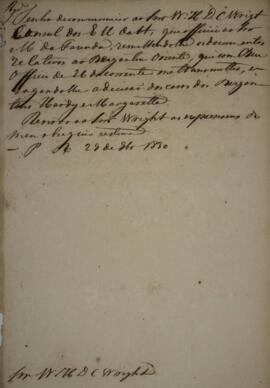 Tenho de communicar ao Snr W. H. D. C. Wright
Consul dos E U da A, que officiei ao Snr
M. da Fazenda, remettendo lhe os documentos
relativos ao Bergantim Oriente, que com o Seu
Officio de 26 do corrente me transmittio, e
rogando lhe a decisão dos casos dos Bergan-
tins Hardy e Margarette
Renovo ao Snr Wright as expressoens de
meu obsequio
P 29 de 1830
Snr W. H. D. C. Wright